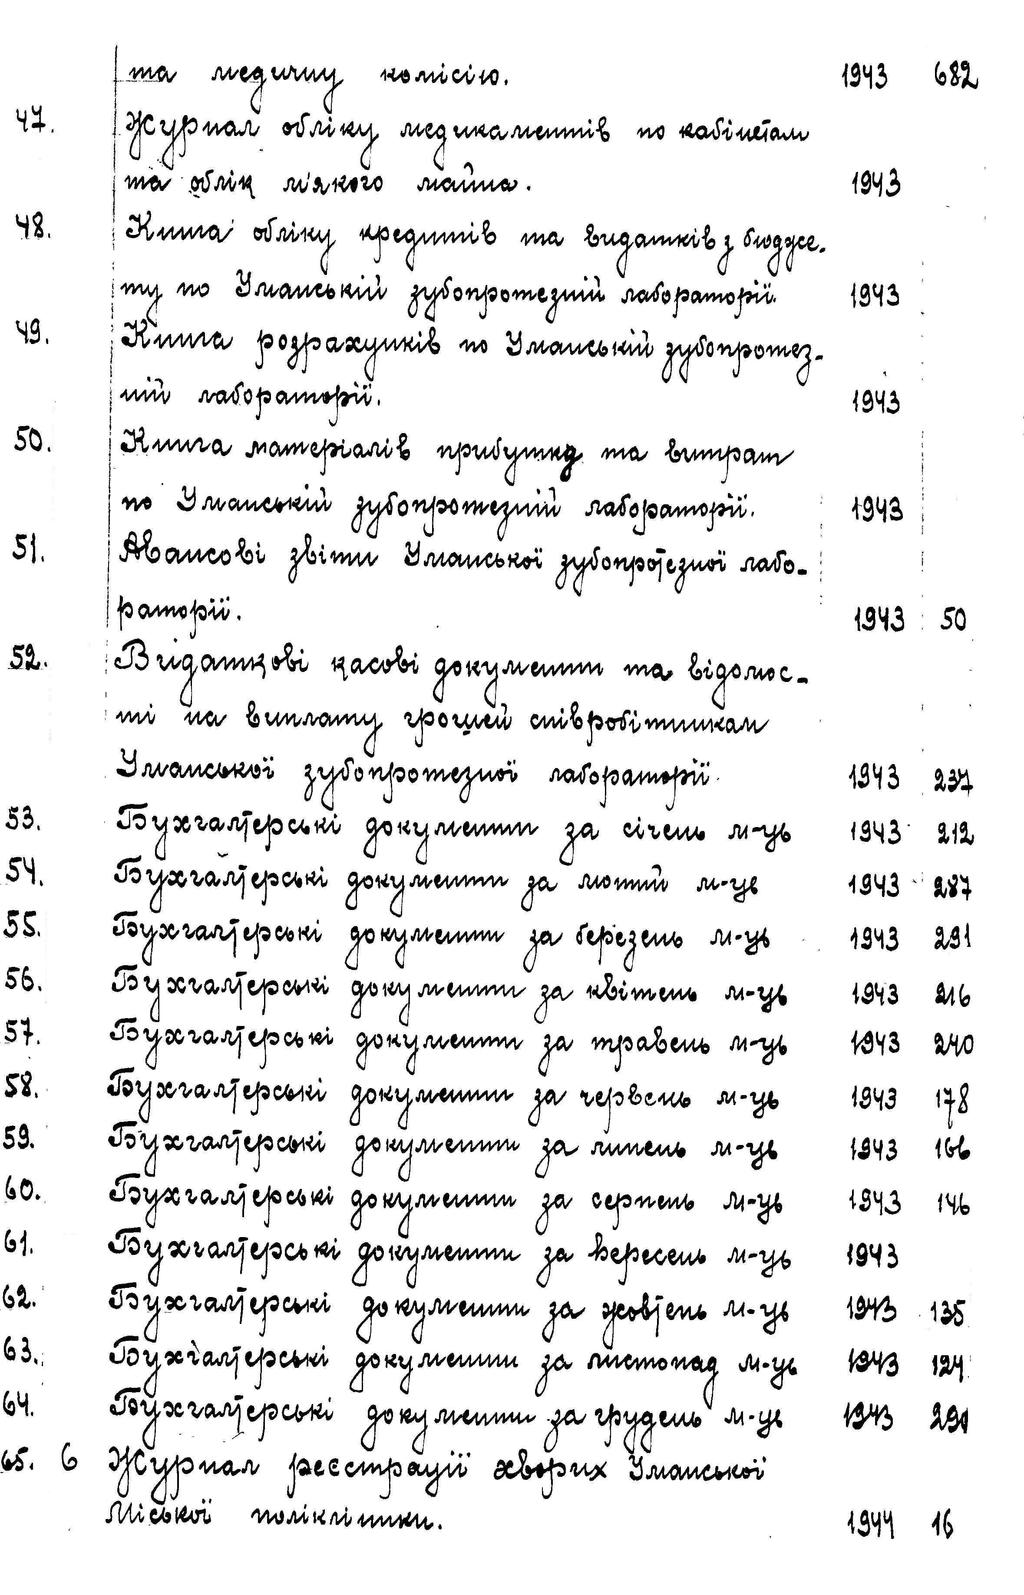 та медичну комісію. 1943 682
47. Журнал обліку медикаментів по кабінетам
та облік м'якого майна. 1943
48. Книга обліку кредитів та видатків з бюдже-
ту по Уманській зубопротезній лабораторії. 1943
49. Книга розрахунків по Уманській зубопротез-
ній лабораторії. 1943
50. Книга матеріалів прибутку та витрат
по Уманській зубопротезній лабораторії. 1943
51. Авансові звіти Уманської зубопротезної лабо-
раторії. 1943 50
52. Видаткові касові документи та відомос-
ті на виплату грошей співробітникам
Уманської зубопротезної лабораторії. 1943 237
53. Бухгалтерські документи за січень м-ць 1943 212
54. Бухгалтерські документи за лютий м-це 1943 287
55. Бухгалтерські документи за березень м-ць 1943 291
56. Бухгалтерські документи за квітень м-ць 1943 216
57. Бухгалтерські документи за травень м-ць 1943 240
58. Бухгалтерські документи за червень м-ць 1943 178
59. Бухгалтерські документи за липень м-ць 1943 166
60. Бухгалтерські документи за серпень м-ць 1943 146
61. Бухгалтерські документи за вересень м-ць 1943
62. Бухгалтерські документи за жовтень м-ць 1943 135
63. Бухгалтерські документи за листопад м-ць 1943 124
64. Бухгалтерські документи за грудень м-ць 1943
65. 6 Журнал реєстрації хворих Уманської
Міської поліклініки. 1944 16